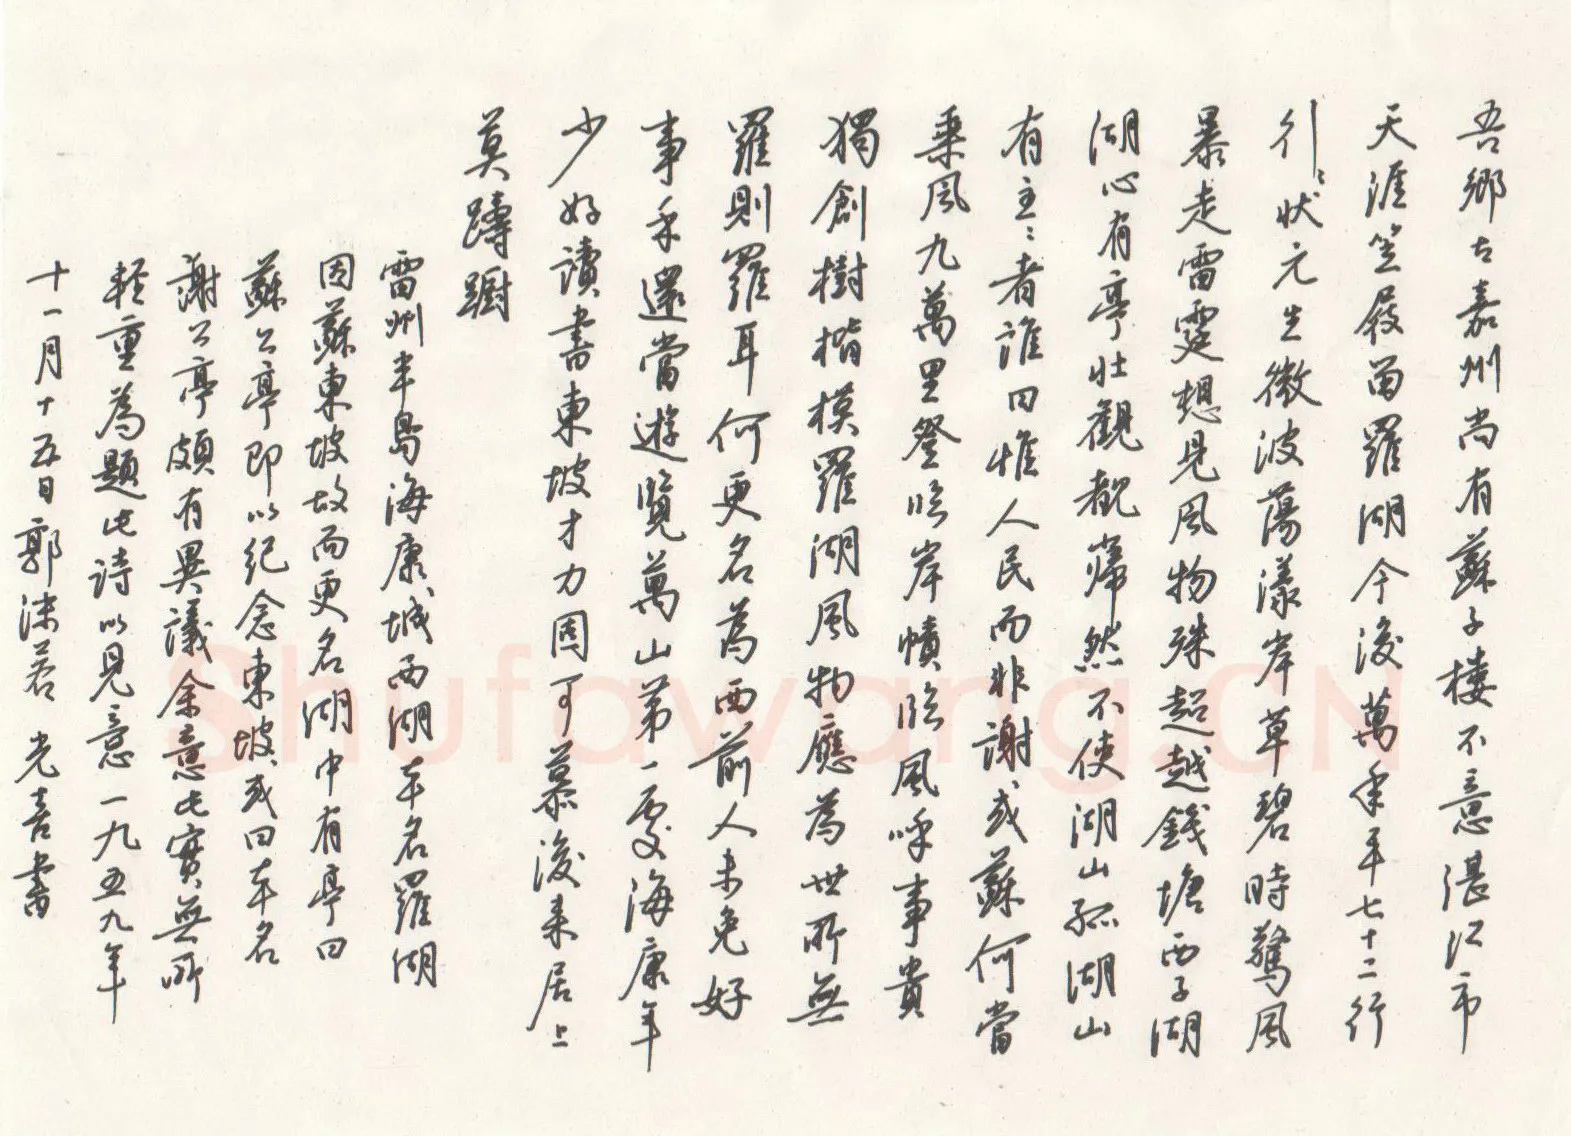 吾鄉古嘉州尚有蘇子樓不意湛江市
天涯笠屐留羅湖今後萬年年七十二行
行〻狀元生微波蕩漾岸草碧時驚風
暴走雷霆想見風物殊超越錢塘西子湖
湖心有亭壯觀觀巋然不使湖山孤湖山
有主〻者誰曰惟人民而非謝或蘇何當
乘風九萬里登臨岸幘臨風呼事貴
獨創樹楷模羅湖風物應為世所無
羅則羅耳何更名為西前人未免好
事乎還當遊覽萬山第一處海康年
少好讀書東坡才力固可慕後來居上
莫躊躕
雷州半島海康城西湖本名羅湖
因蘇東坡故而更名湖中有亭曰
蘇公亭即以紀念東坡或曰本名
謝公亭頗有異議余意此實無所
輕重為題此詩以見意一九五九年
十一月十五日郭沫若 光喜書
Shufawang.CN